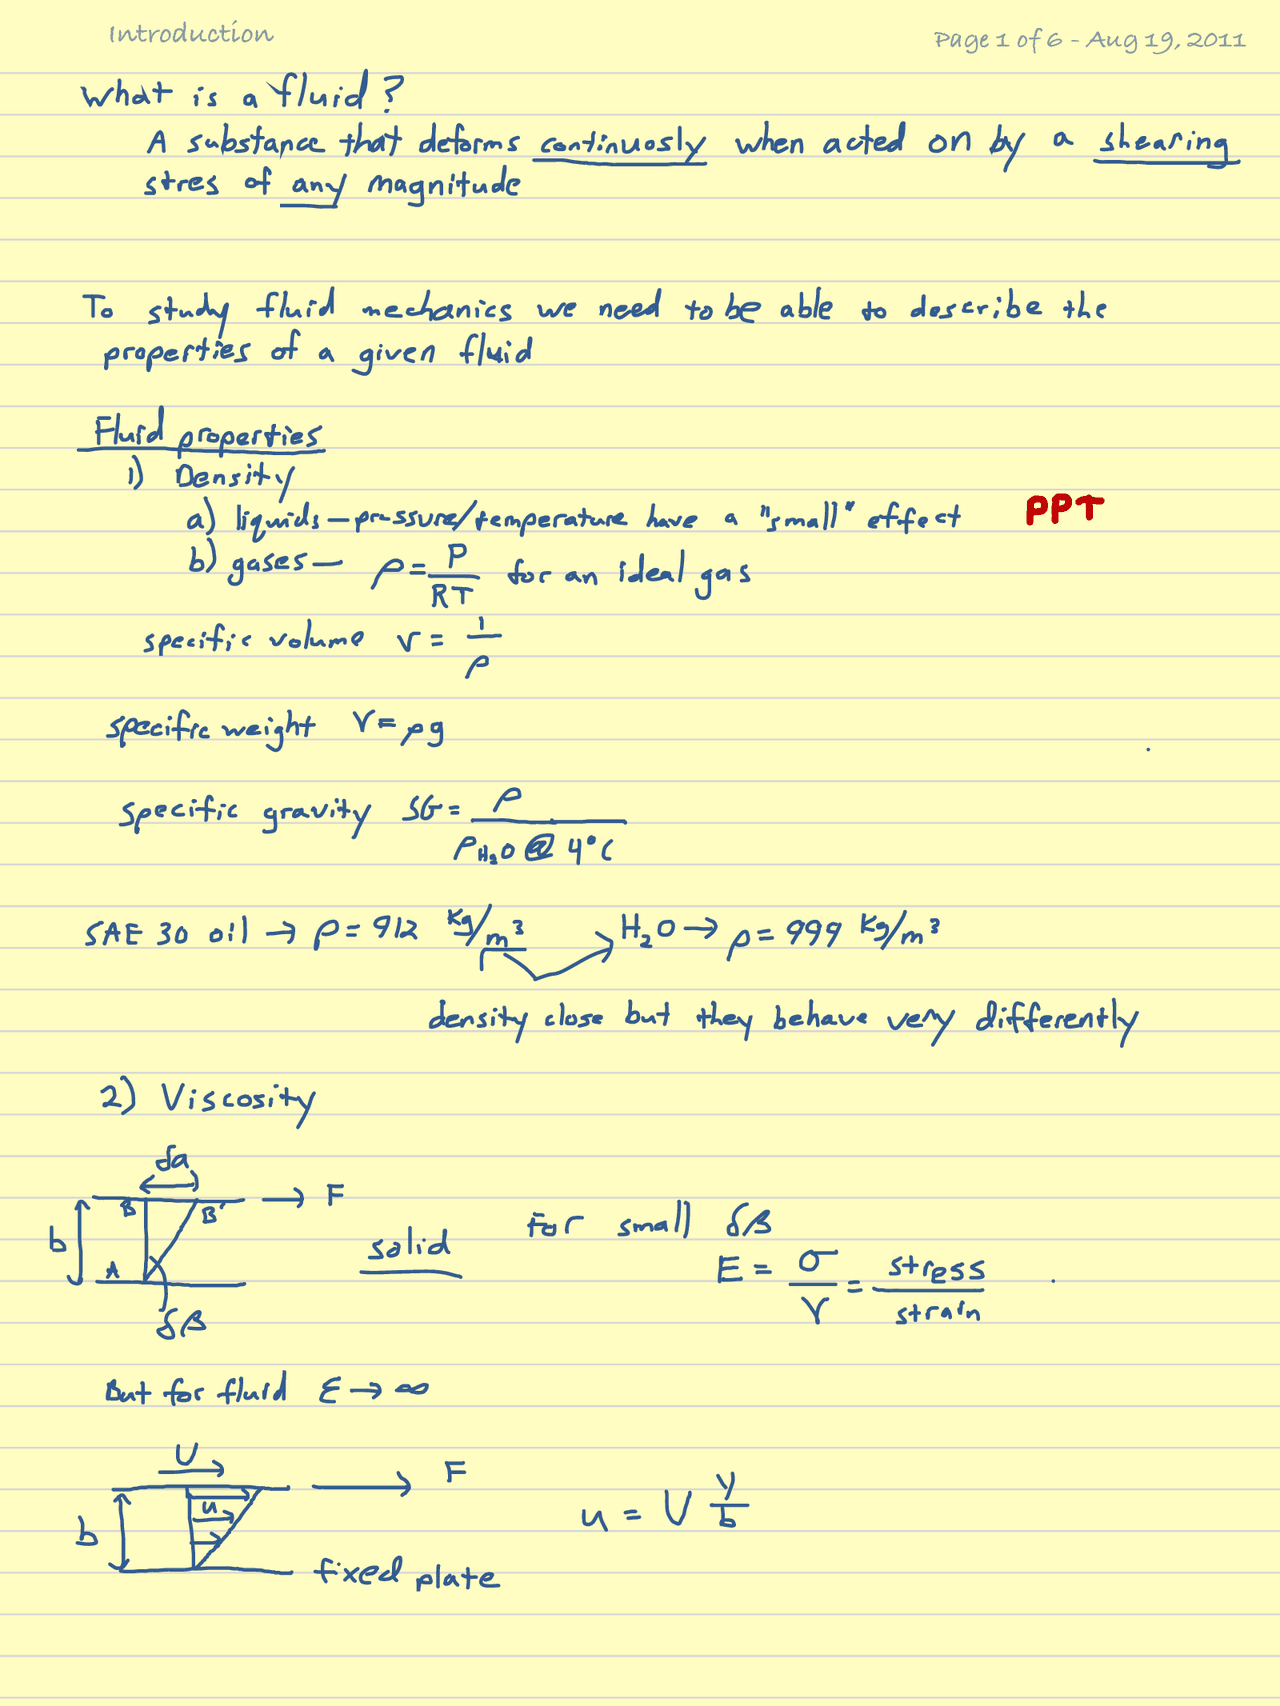 Introduction
Page 1 of 6 - Aug 19, 2011
What is a fluid?
A substance that deforms continuosly when acted on by a shearing
stres of any magnitude
To study fluid mechanics we need to be able to describe the
properties of a given fluid
Fluid properties
1) Density
a) liquids — pressure/temperature have a "small" effect PPT
b) gases — ρ = P/RT for an ideal gas
specific volume v = 1/ρ
specific weight γ = ρg
specific gravity SG = ρ/ρH₂O @ 4°C
SAE 30 oil → ρ = 912 Kg/m³ H₂O → ρ = 999 Kg/m³
density close but they behave very differently
2) Viscosity
δa
B B' → F
b
A
δβ
solid
For small δβ
E = σ/γ = stress/strain
But for fluid E → ∞
U
F
u
b
fixed plate
u = U y/b